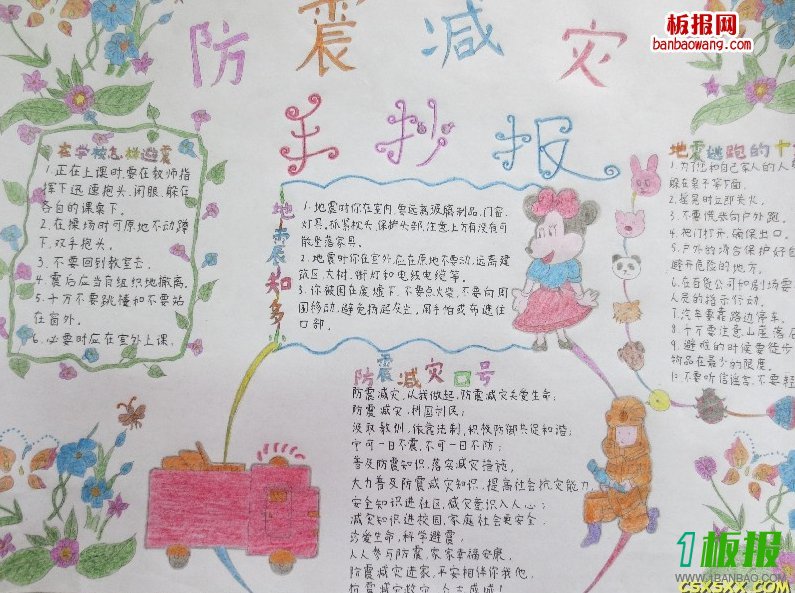 板报网
banbaowang.com
防震减灾
手抄报
在学校怎样避震
1.正在上课时,要在教师指
挥下迅速抱头、闭眼、躲在
各自的课桌下。
2.在操场时可原地不动蹲
下,双手抱头。
3.不要回到教室去。
4.震后应当有组织地撤离。
5.千万不要跳楼和不要站
在窗外。
6.必要时应在室外上课。
地震知多
1.地震时你在室内,要远离玻璃制品、门窗、
灯具。抓紧枕头,保护头部,注意上方有没有可
能坠落家具。
2.地震时你在室外,应在原地不要动,远离建
筑区、大树、街灯和电线电缆等。
3.你被困在废墟下,不要点火柴,不要向周
围移动,避免扬起灰尘,用手帕或布遮住
口部。
地震逃跑的十
1.为了您和自己家人的人
躲在桌子等下面。
2.摇晃时立即关火。
3.不要慌张向户外跑。
4.把门打开,确保出口。
5.户外的场合保护好自
避开危险的地方。
6.在百货公司和剧场要
人员的指示行动。
7.汽车要靠路边停车。
8.千万要注意山崖落石
9.避难的时候要徒步
物品在最少的限度。
10.不要听信谣言,不要轻
防震减灾口号
防震减灾,从我做起,防震减灾关爱生命;
防震减灾,利国利民;
汲取教训,依靠法制,积极防御共促和谐;
宁可一日不震,不可一日不防;
普及防震知识,落实减灾措施。
大力普及防震减灾知识,提高社会抗灾能力
安全知识进社区,减灾意识入人心;
减灾知识进校园,家庭社会更安全。
珍爱生命,科学避震;
人人参与防震,家家幸福安康。
防震减灾进家,平安相伴你我他,
抗震减灾救灾,众志成城!
1板报
WWW.1BANBAO.COM
CSXSXX.COM